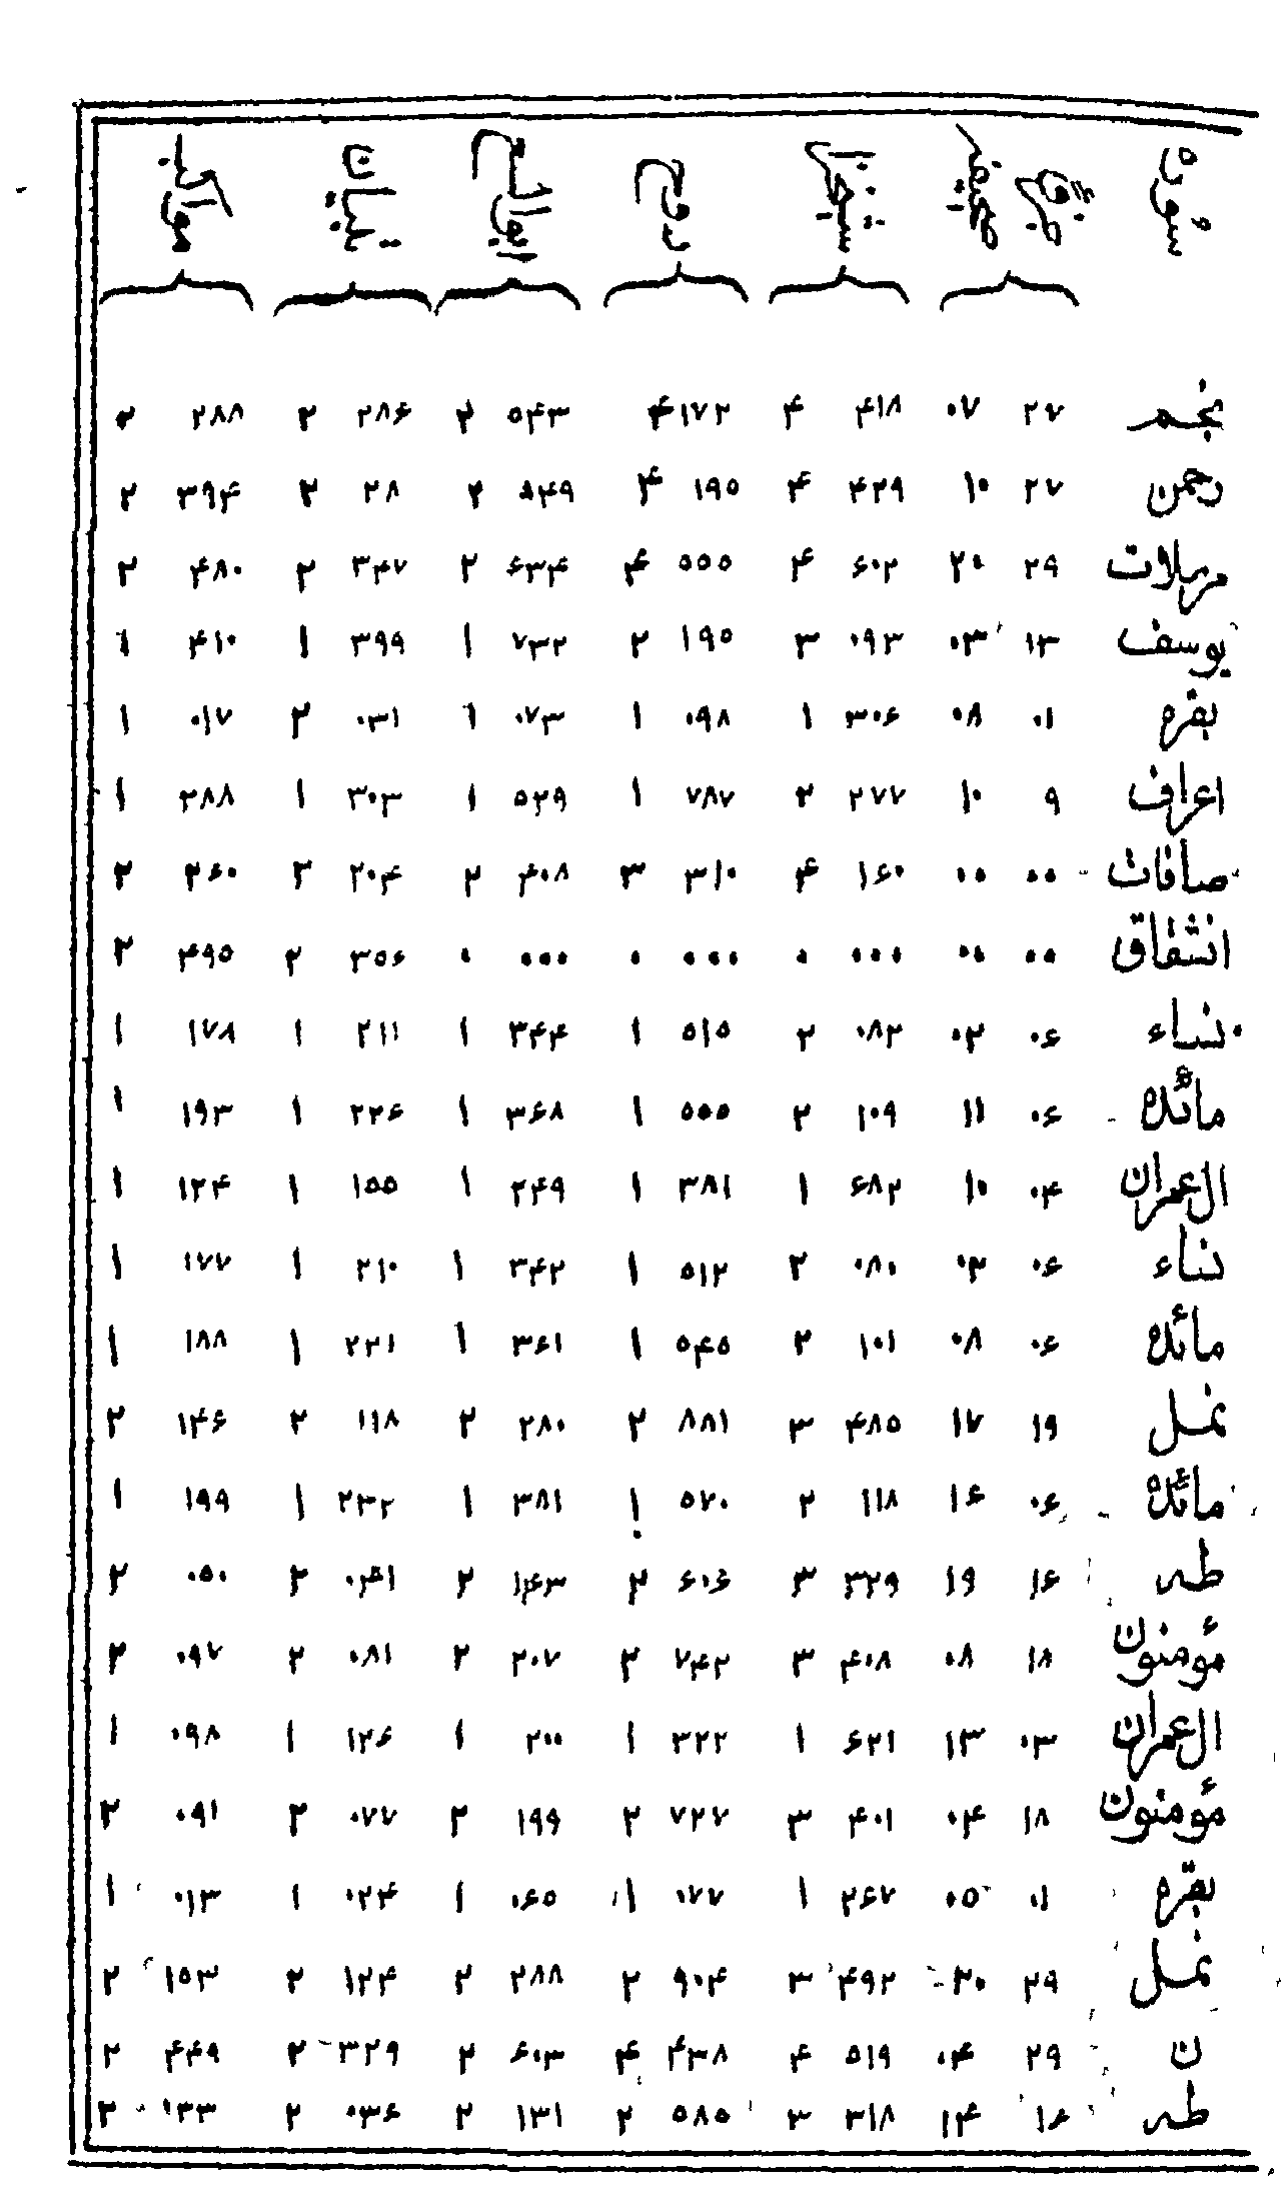 سورة
نجم ۲۷ ۰۷ ۴۱۸ ۴ ۱۷۲ ۴ ۵۴۳ ۲ ۲۸۶ ۲ ۲۸۸ ۲
رحمن ۲۷ ۱۰ ۴۲۹ ۴ ۱۹۵ ۴ ۸۴۹ ۲ ۲۸ ۲ ۳۹۴ ۲
مرسلات ۲۹ ۲۰ ۶۰۲ ۴ ۵۵۵ ۴ ۶۳۴ ۲ ۳۴۷ ۲ ۴۸۰ ۲
یوسف ۱۳ ۰۳ ۰۹۳ ۳ ۱۹۵ ۲ ۷۳۲ ۱ ۳۹۹ ۱ ۴۱۰ ۱
بقره ۰۱ ۰۸ ۳۰۶ ۱ ۰۹۸ ۱ ۰۷۳ ۱ ۰۳۱ ۲ ۰۱۷ ۱
اعراف ۹ ۱۰ ۲۷۷ ۲ ۷۸۷ ۱ ۵۲۹ ۱ ۳۰۳ ۱ ۲۸۸ ۱
صافات ۰۰ ۰۰ ۱۶۰ ۴ ۳۱۰ ۳ ۴۰۸ ۲ ۲۰۴ ۲ ۲۶۰ ۲
انشقاق ۰۰ ۰۰ ۰۰۰ ۰ ۰۰۰ ۰ ۰۰۰ ۰ ۳۵۶ ۲ ۴۹۵ ۲
نساء ۰۶ ۰۲ ۰۸۲ ۲ ۵۱۵ ۱ ۳۴۴ ۱ ۲۱۱ ۱ ۱۷۸ ۱
مائده ۰۶ ۱۱ ۱۰۹ ۲ ۵۵۵ ۱ ۳۶۸ ۱ ۲۲۶ ۱ ۱۹۳ ۱
ال عمران ۰۴ ۱۰ ۶۸۲ ۱ ۳۸۱ ۱ ۲۴۹ ۱ ۱۵۵ ۱ ۱۲۴ ۱
نساء ۰۶ ۰۲ ۰۸۰ ۲ ۵۱۲ ۱ ۳۴۲ ۱ ۲۱۰ ۱ ۱۷۷ ۱
مائده ۰۶ ۰۸ ۱۰۱ ۲ ۵۴۵ ۱ ۳۶۱ ۱ ۲۲۱ ۱ ۱۸۸ ۱
نمل ۱۹ ۱۷ ۴۸۵ ۳ ۸۸۱ ۲ ۲۸۰ ۲ ۱۱۸ ۲ ۱۴۶ ۲
مائده ۰۶ ۱۶ ۱۱۸ ۲ ۵۷۰ ۱ ۳۸۱ ۱ ۲۳۲ ۱ ۱۹۹ ۱
طه ۱۶ ۱۹ ۳۲۹ ۳ ۶۰۶ ۲ ۱۴۳ ۲ ۰۴۱ ۲ ۰۵۰ ۲
مؤمنون ۱۸ ۰۸ ۴۰۸ ۳ ۷۴۲ ۲ ۲۰۷ ۲ ۰۸۱ ۲ ۰۹۷ ۲
ال عمران ۰۳ ۱۳ ۶۲۱ ۱ ۳۲۲ ۱ ۲۰۰ ۱ ۱۲۶ ۱ ۰۹۸ ۱
مؤمنون ۱۸ ۰۴ ۴۰۱ ۳ ۷۲۷ ۲ ۱۹۹ ۲ ۰۷۷ ۲ ۰۹۱ ۲
بقره ۰۱ ۰۵ ۲۶۷ ۱ ۰۷۷ ۱ ۰۶۵ ۱ ۰۲۴ ۱ ۰۱۳ ۱
نمل ۲۹ ۲۰ ۴۹۲ ۳ ۹۰۴ ۲ ۲۸۸ ۲ ۱۲۴ ۲ ۱۵۳ ۲
ن ۲۹ ۰۴ ۵۱۹ ۴ ۴۳۸ ۴ ۶۰۳ ۲ ۳۲۹ ۲ ۴۴۹ ۲
طه ۱۶ ۱۴ ۳۱۸ ۳ ۵۸۵ ۲ ۱۳۱ ۲ ۰۳۶ ۲ ۱۳۳ ۲